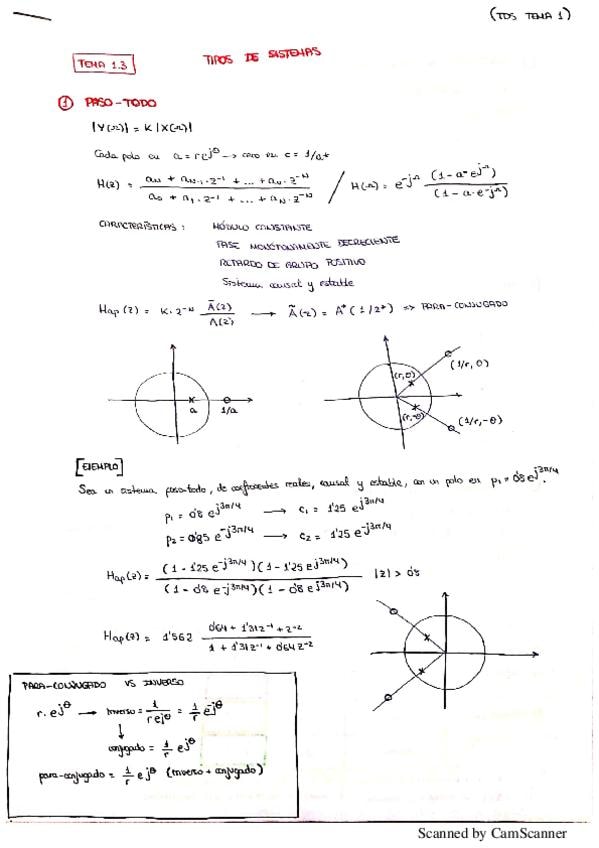 (TDS TEMA 1)
TEMA 1.3
TIPOS DE SISTEMAS
① PASO-TODO
|Y(Ω)| = K |X(Ω)|
Cada polo en a = re^jθ → cero en c = 1/a*
H(z) = (a_N + a_N-1 · z^-1 + ... + a_N · z^-N) / (a_0 + a_1 · z^-1 + ... + a_N · z^-N) / H(Ω) = e^-jΩ (1 - a* e^jΩ) / (1 - a · e^-jΩ)
CARACTERÍSTICAS : MÓDULO CONSTANTE
FASE MONÓTONAMENTE DECRECIENTE
RETARDO DE GRUPO POSITIVO
Sistema causal y estable
Hap(z) = K · z^-N Ã(z) / A(z) → Ã(z) = A* (1/z*) => PARA-CONJUGADO
a 1/a
(r, θ) (1/r, θ)
(r, -θ) (1/r, -θ)
[EJEMPLO]
Sea un sistema paso-todo, de coeficientes reales, causal y estable, con un polo en p1 = 0'8 e^j3π/4.
p1 = 0'8 e^j3π/4 → c1 = 1'25 e^j3π/4
p2 = 0'85 e^-j3π/4 → c2 = 1'25 e^-j3π/4
Hap(z) = (1 - 1'25 e^-j3π/4)(1 - 1'25 e^j3π/4) / (1 - 0'8 e^-j3π/4)(1 - 0'8 e^j3π/4) |z| > 0'8
Hap(z) = 1'562 (0'64 + 1'31z^-1 + z^-2) / (1 + 1'13z^-1 + 0'64 z^-2)
PARA-CONJUGADO VS INVERSO
r · e^jθ → Inverso = 1 / r e^jθ = 1/r e^-jθ
conjugado = 1/r e^jθ
para-conjugado = 1/r e^jθ (Inverso + conjugado)
Scanned by CamScanner